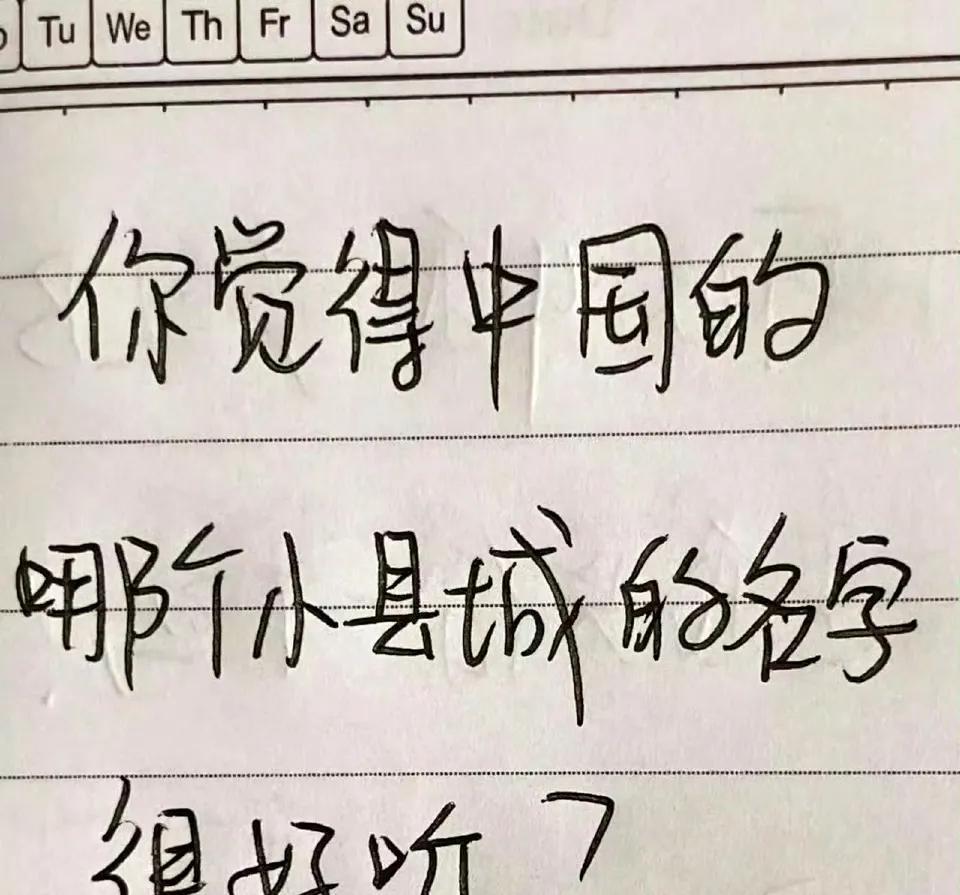 Tu We Th Fr Sa Su
你觉得中国的
哪个小县城的名字
很好听?